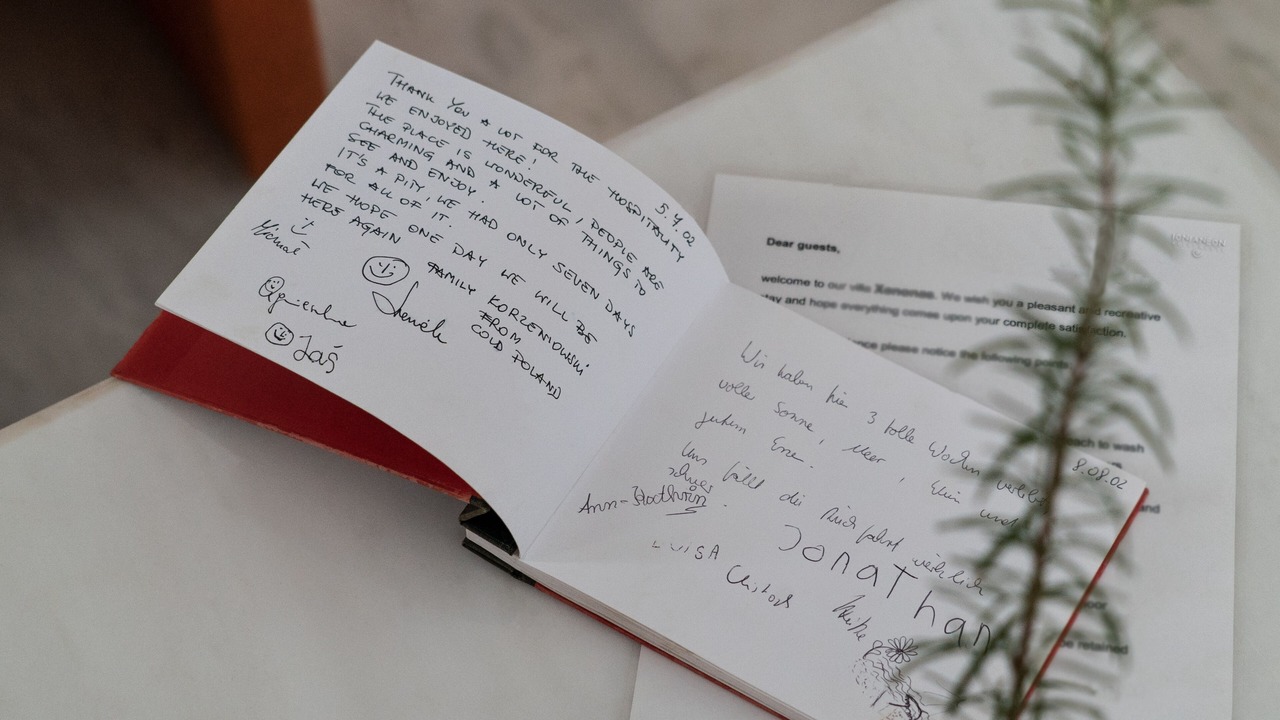 5.7.02
THANK YOU A LOT FOR THE HOSPITALITY
WE ENJOYED HERE!
THE PLACE IS WONDERFUL, PEOPLE ARE
CHARMING AND A LOT OF THINGS TO
SEE AND ENJOY.
IT'S A PITY, WE HAD ONLY SEVEN DAYS
FOR ALL OF IT.
WE HOPE ONE DAY WE WILL BE
HERE AGAIN
FAMILY KORZENIOWSKI
FROM
COLD POLAND
Michał
Agnieszka
Jaś
8.08.02
Wir haben hier 3 tolle Wochen
volle Sonne, Meer, Wein und
gutem Essen.
Uns fällt die Rückfahrt wirklich
schwer.
Ann-Kathrin
Jonathan
LUISA
Christoph
Heike
Dear guests,
welcome to our villa Xenones. We wish you a pleasant and recreative
day and hope everything comes upon your complete satisfaction.
please notice the following points
to wash
and
be retained